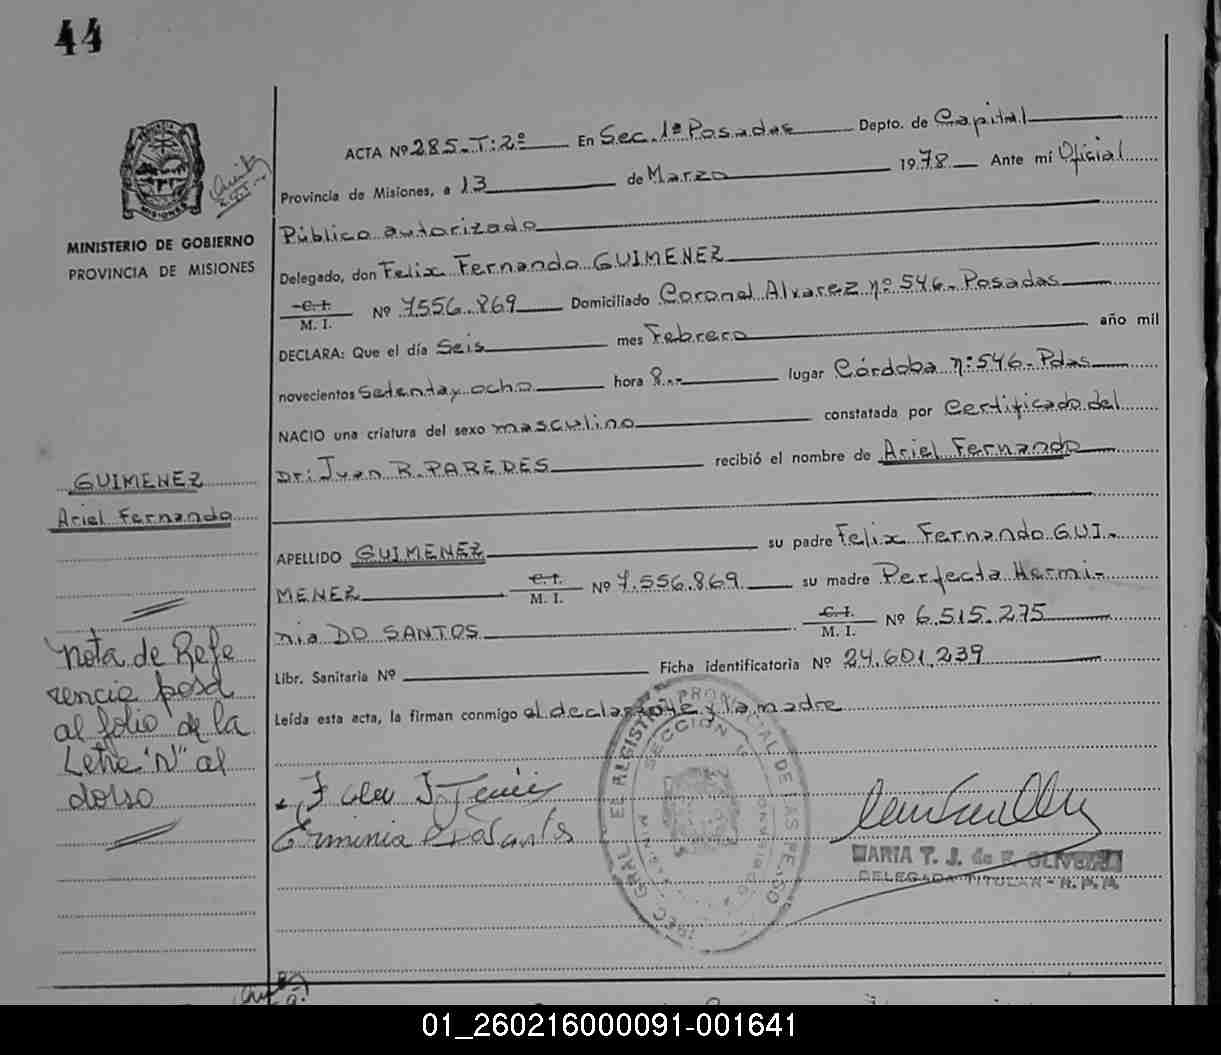 44
ACTA Nº 285-T:2º En Sec. 1ª Posadas Depto. de Capital
Provincia de Misiones, a 13 de Marzo 1978 Ante mí Oficial
Público autorizado
Delegado, don Felix Fernando GUIMENEZ
C.I. M. I. Nº 7556.869 Domiciliado Coronel Alvarez nº 546. Posadas
DECLARA: Que el día Seis mes Febrero año mil
novecientos Setenta y ocho hora 8.-- lugar Córdoba nº 546. Pdas
NACIO una criatura del sexo masculino constatada por Certificado del
Dr: Juan R. PAREDES recibió el nombre de Ariel Fernando
APELLIDO GUIMENEZ su padre Felix Fernando GUI-
MENEZ C.I. M. I. Nº 7.556.869 su madre Perfecta Hermi-
nia DO SANTOS C.I. M. I. Nº 6.515.275
Libr. Sanitaria Nº Ficha identificatoria Nº 24.601.239
Leída esta acta, la firman conmigo el declarante y la madre
MINISTERIO DE GOBIERNO
PROVINCIA DE MISIONES
GUIMENEZ
Ariel Fernando
Nota de Refe
rencia posa
al folio de la
Letra "N" al
dorso
MARIA T. J. de F. OLIVEIRA
DELEGADA TITULAR - R. P. P.
SECCION
01_260216000091-001641